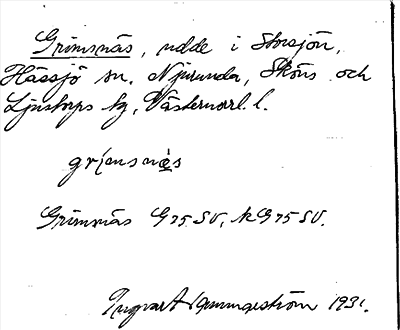 Grimsnäs, udde i Storsjön,
Hässjö sn, Njurunda, Sköns och
Ljustorps tg, Västernorrl. l.
grimsnäs
Grimsnäs G 75 SV, NG 75 SV.
Ingvart 1931.